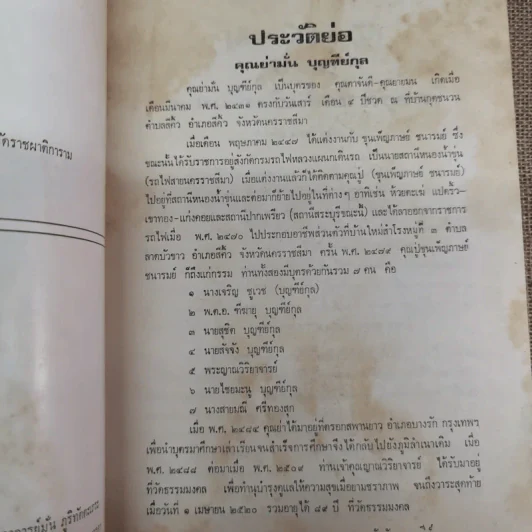 ประวัติย่อ
คุณย่ามั่น บุญฑีย์กุล
คุณย่ามั่น บุญฑีย์กุล เป็นบุตรของ คุณตาจันดี-คุณยายมน เกิดเมื่อ
เดือนมีนาคม พ.ศ. ๒๔๓๑ ตรงกับวันเสาร์ เดือน ๔ ปีชวด ณ ที่บ้านกุดชนวน
ตำบลสีคิ้ว อำเภอสีคิ้ว จังหวัดนครราชสีมา
เมื่อเดือน พฤษภาคม ๒๔๔๗ ได้แต่งงานกับ ขุนเพ็ญภาษย์ ชนารมย์ ซึ่ง
ขณะนั้นได้รับราชการอยู่สังกัดกรมรถไฟหลวงแผนกเดินรถ เป็นนายสถานีหนองน้ำขุ่น
(รถไฟสายนครราชสีมา) เมื่อแต่งงานแล้วก็ได้ติดตามคุณปู่ (ขุนเพ็ญภาษย์ ชนารมย์)
ไปอยู่ที่สถานีหนองน้ำขุ่นและต่อมาก็ย้ายไปอยู่ในที่ต่างๆ อาทิเช่น ห้วยตะแม่ แปดริ้ว-
เขาทอง-แก่งคอยและสถานีปากเพรียว (สถานีสระบุรีขณะนี้) และได้ลาออกจากราชการ
รถไฟเมื่อ พ.ศ. ๒๔๗๐ ไปประกอบอาชีพส่วนตัวที่บ้านใหม่สำโรงหมู่ที่ ๓ ตำบล
ลาดบัวขาว อำเภอสีคิ้ว จังหวัดนครราชสีมา ครั้น พ.ศ. ๒๔๗๙ คุณปู่ขุนเพ็ญภาษย์
ชนารมย์ ก็ถึงแก่กรรม ท่านทั้งสองมีบุตรด้วยกันรวม ๗ คน คือ
๑ นางเจริญ ชูเวช (บุญฑีย์กุล)
๒ พ.ต.อ. ทีรายุ บุญฑีย์กุล
๓ นายสุชิต บุญฑีย์กุล
๔ นายสัจจัง บุญฑีย์กุล
๕ พระญาณวิริยาจารย์
๖ นายไชยมะนู บุญฑีย์กุล
๗ นางสายมณี ศรีทองสุก
เมื่อ พ.ศ. ๒๔๘๔ คุณย่าได้มาอยู่ที่ตรอกสพานยาว อำเภอบางรัก กรุงเทพฯ
เพื่อนำบุตรมาศึกษาเล่าเรียนจนสำเร็จการศึกษาจึงได้กลับไปยังภูมิลำเนาเดิม เมื่อ
พ.ศ. ๒๔๘๘ ต่อมาเมื่อ พ.ศ. ๒๕๐๙ ท่านเจ้าคุณญาณวิริยาจารย์ ได้รับมาอยู่
ที่วัดธรรมมงคล เพื่อทำนุบำรุงดูแลให้ความสุขเมื่อยามชราภาพ จนถึงวาระสุดท้าย
เมื่อวันที่ ๑ เมษายน ๒๕๒๐ รวมอายุได้ ๘๙ ปี ที่วัดธรรมมงคล